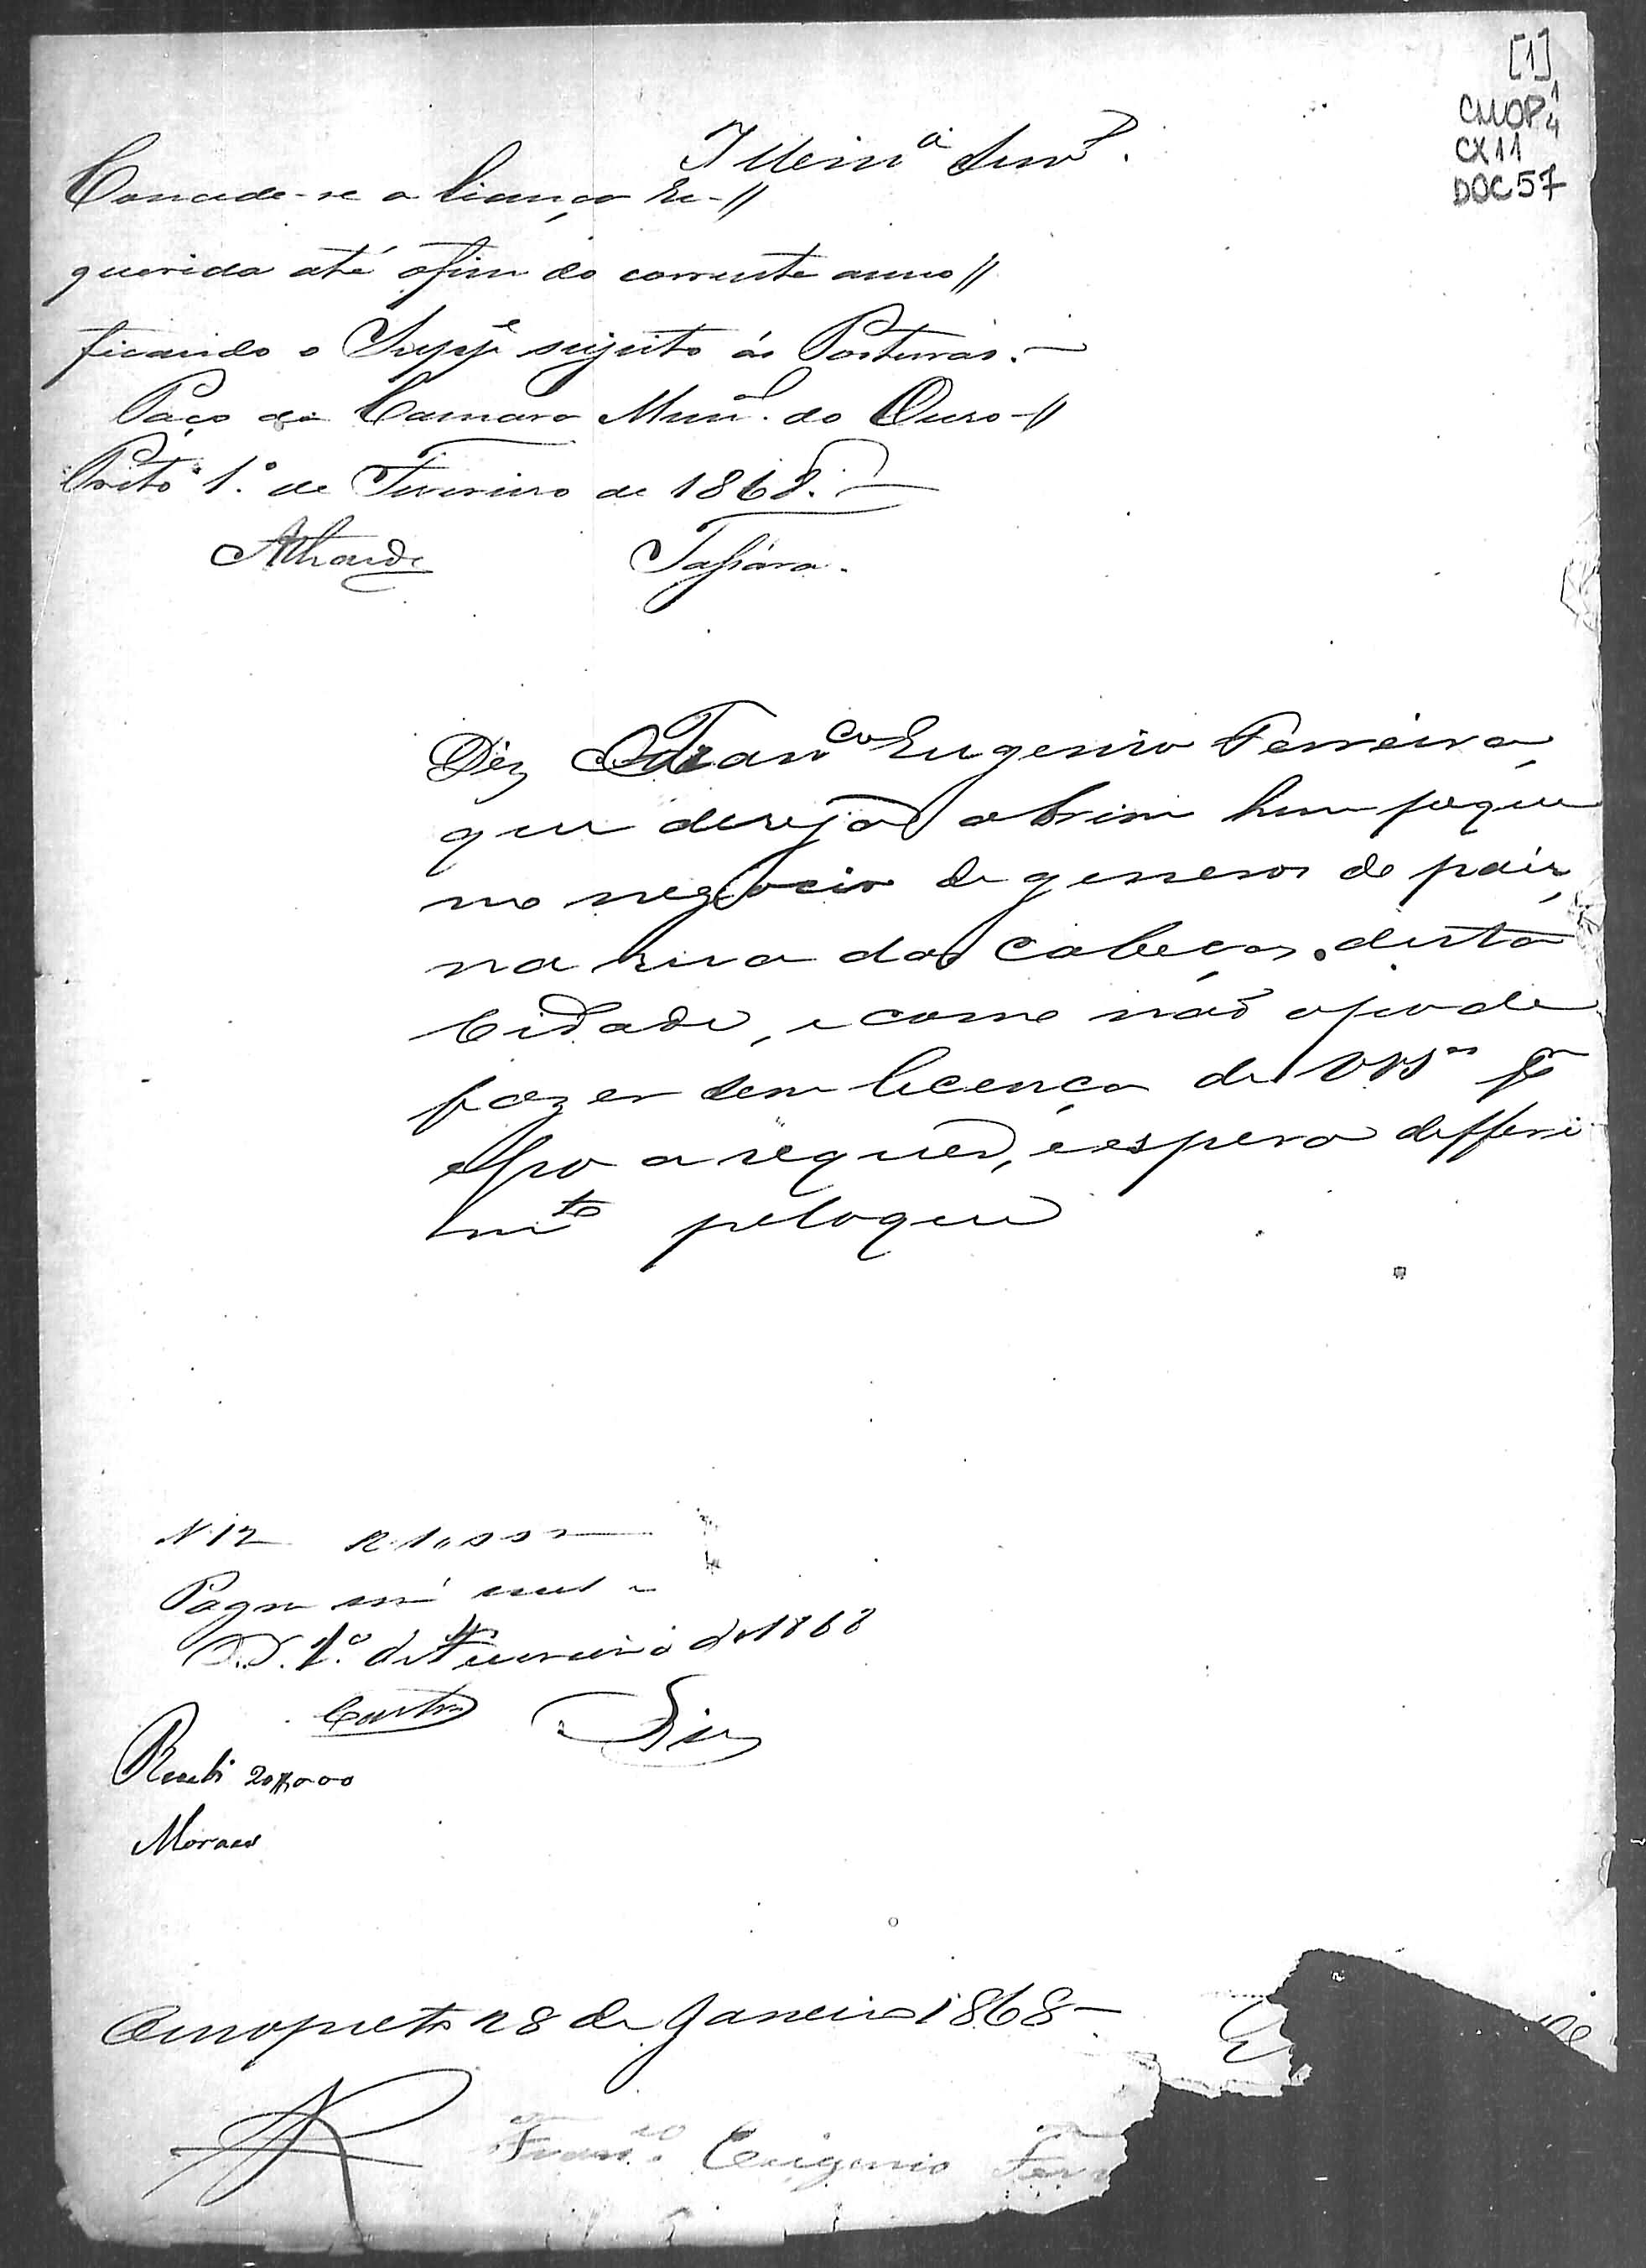 [1]
CMOP 1
4
CX 11
DOC 57
Concede-se a licença re-//
querida até o fim do corrente anno//
ficando o Suppe sujeito ás Posturas.—
Paço da Camara Munal. do Ouro-//
Preto 1.º de Fevereiro de 1868.—
Diz Franco Eugenio Ferreira,
que deseja abrir hum peque
no negocio de generos do paiz,
na rua das Cabeças desta
Cidade, e como não o pode
fazer sem licença de VVSas pr
isso a requer, e espera defferi
mto pelo que
N 12
Pagou
1.º de Fevereiro de 1868
Castro
Recebi 20$000
Moraes
Ouropreto 28 de Janeiro 1868—
Franco Eugenio Ferr